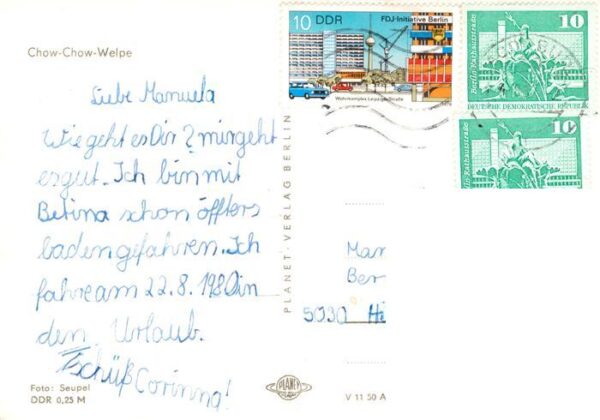 Chow-Chow-Welpe
Liebe Manuela
Wie geht es Dir? mir geht
es gut. Ich bin mit
Betina schon öffters
baden gefahren. Ich
fahre am 22.8.1980 in
den Urlaub.
Tschüß Corinna!
Foto: Seupel
DDR 0,25 M
PLANET-VERLAG BERLIN
10 DDR FDJ-Initiative Berlin
Wohnkomplex Leipziger Straße
10
Berlin-Rathausstraße
DEUTSCHE DEMOKRATISCHE REPUBLIK
10
in-Rathausstraße
Mar
Ber
5030 Hi
PLANET
V 11 50 A